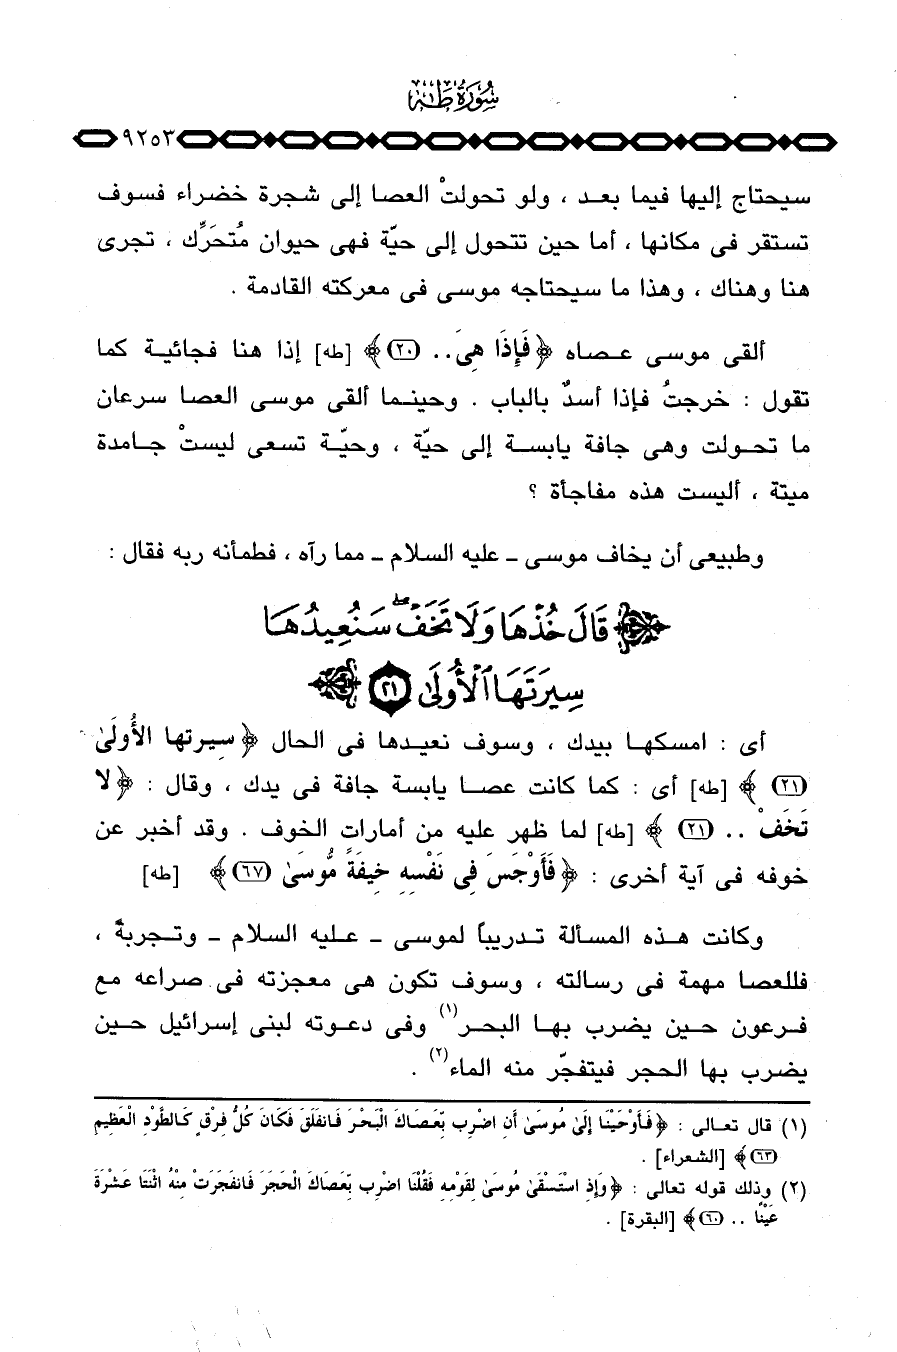 سُورَةُ طٰهٰ
٩٢٥٣
سيحتاج إليها فيما بعد ، ولو تحولتْ العصا إلى شجرة خضراء فسوف
تستقر فى مكانها ، أما حين تتحول إلى حيّة فهى حيوان مُتحَرِّك ، تجرى
هنا وهناك ، وهذا ما سيحتاجه موسى فى معركته القادمة .
ألقى موسى عصاه ﴿ فَإِذَا هِىَ.. (٢٠) ﴾ [طه] إذا هنا فجائية كما
تقول : خرجتُ فإذا أسدٌ بالباب . وحينما ألقى موسى العصا سرعان
ما تحولت وهى جافة يابسة إلى حيّة ، وحيّة تسعى ليستْ جامدة
ميتة ، أليست هذه مفاجأة ؟
وطبيعى أن يخاف موسى ـ عليه السلام ـ مما رآه ، فطمأنه ربه فقال :
﴿ قَالَ خُذْهَا وَلَا تَخَفْ ۖ سَنُعِيدُهَا
سِيرَتَهَا ٱلْأُولَىٰ (٢١) ﴾
أى : امسكها بيدك ، وسوف نعيدها فى الحال ﴿ سيرتها الأُولَىٰ
(٢١) ﴾ [طه] أى : كما كانت عصا يابسة جافة فى يدك ، وقال : ﴿ لا
تَخَفْ .. (٢١) ﴾ [طه] لما ظهر عليه من أمارات الخوف . وقد أخبر عن
خوفه فى آية أخرى : ﴿ فَأَوْجَسَ فِى نَفْسِهِ خِيفَةً مُّوسَىٰ (٦٧) ﴾ [طه]
وكانت هذه المسألة تدريباً لموسى ـ عليه السلام ـ وتجربة ،
فللعصا مهمة فى رسالته ، وسوف تكون هى معجزته فى صراعه مع
فرعون حين يضرب بها البحر(١) وفى دعوته لبنى إسرائيل حين
يضرب بها الحجر فيتفجّر منه الماء(٢) .
(١) قال تعالى : ﴿ فَأَوْحَيْنَا إِلَىٰ مُوسَىٰ أَنِ اضْرِب بِّعَصَاكَ الْبَحْرَ فَانفَلَقَ فَكَانَ كُلُّ فِرْقٍ كَالطَّوْدِ الْعَظِيمِ
(٦٣) ﴾ [الشعراء] .
(٢) وذلك قوله تعالى : ﴿ وَإِذِ اسْتَسْقَىٰ مُوسَىٰ لِقَوْمِهِ فَقُلْنَا اضْرِب بِّعَصَاكَ الْحَجَرَ فَانفَجَرَتْ مِنْهُ اثْنَتَا عَشْرَةَ
عَيْنًا .. (٦٠) ﴾ [البقرة] .